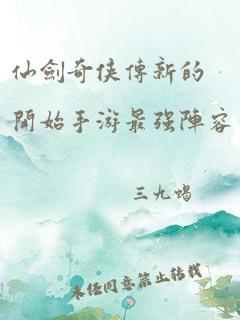 仙劍奇侠傳新的
開始手游最强陣容
三九喝
未经同意禁止转载